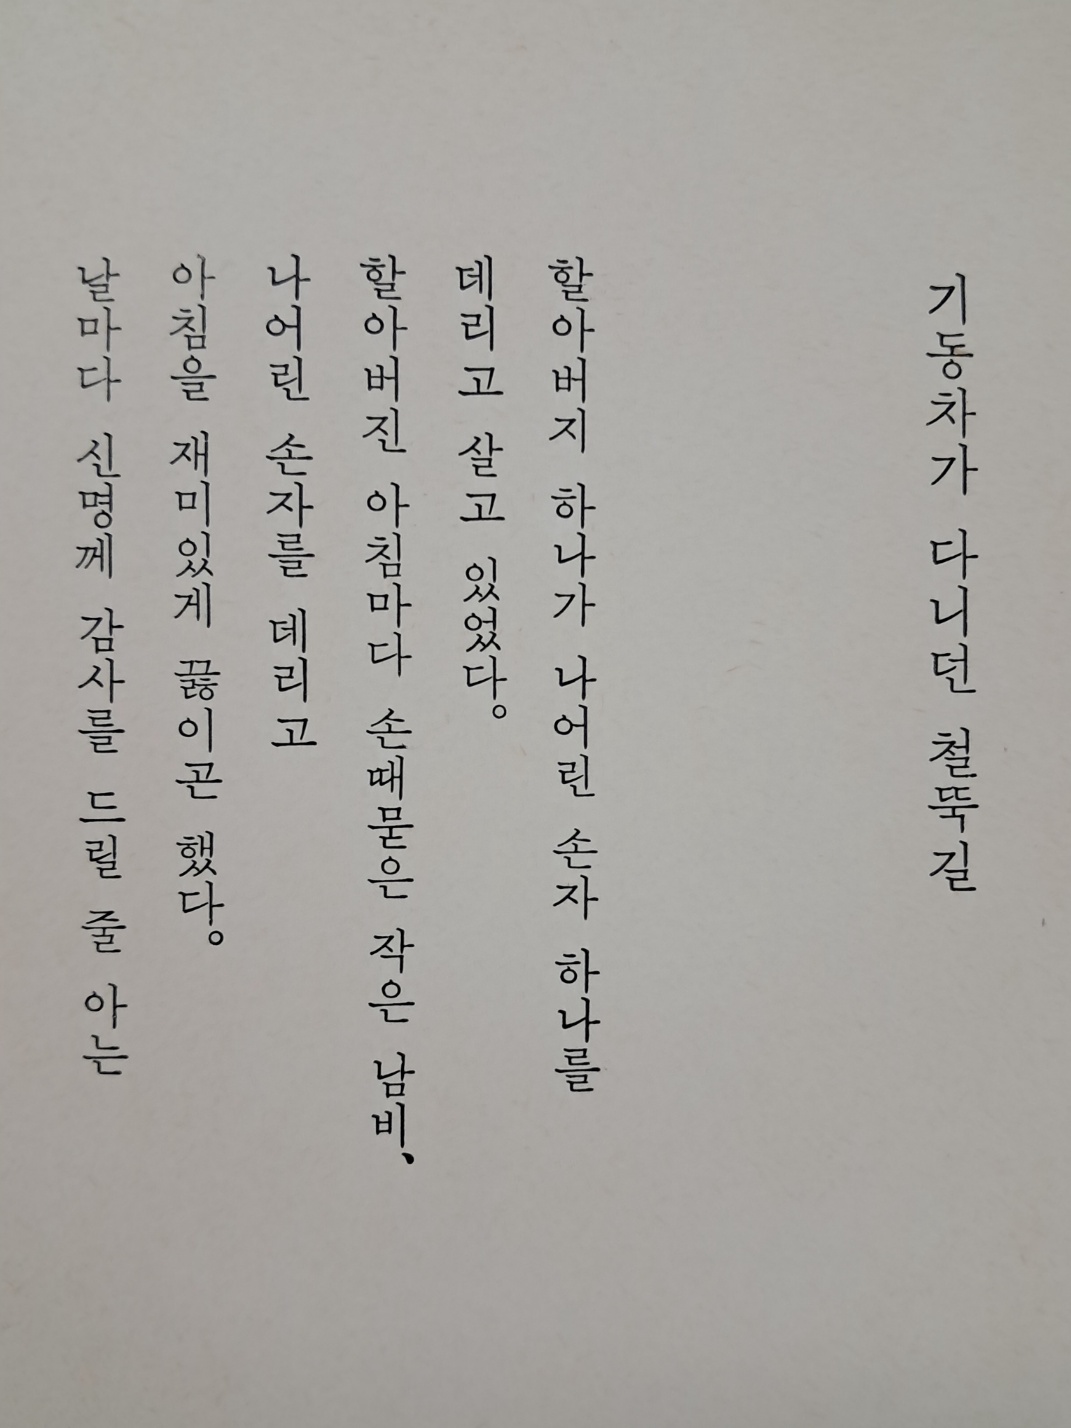 기동차가 다니던 철뚝길
할아버지 하나가 나어린 손자 하나를
데리고 살고 있었다。
할아버진 아침마다 손때묻은 작은 남비、
나어린 손자를 데리고
아침을 재미있게 끓이곤 했다。
날마다 신명께 감사를 드릴 줄 아는